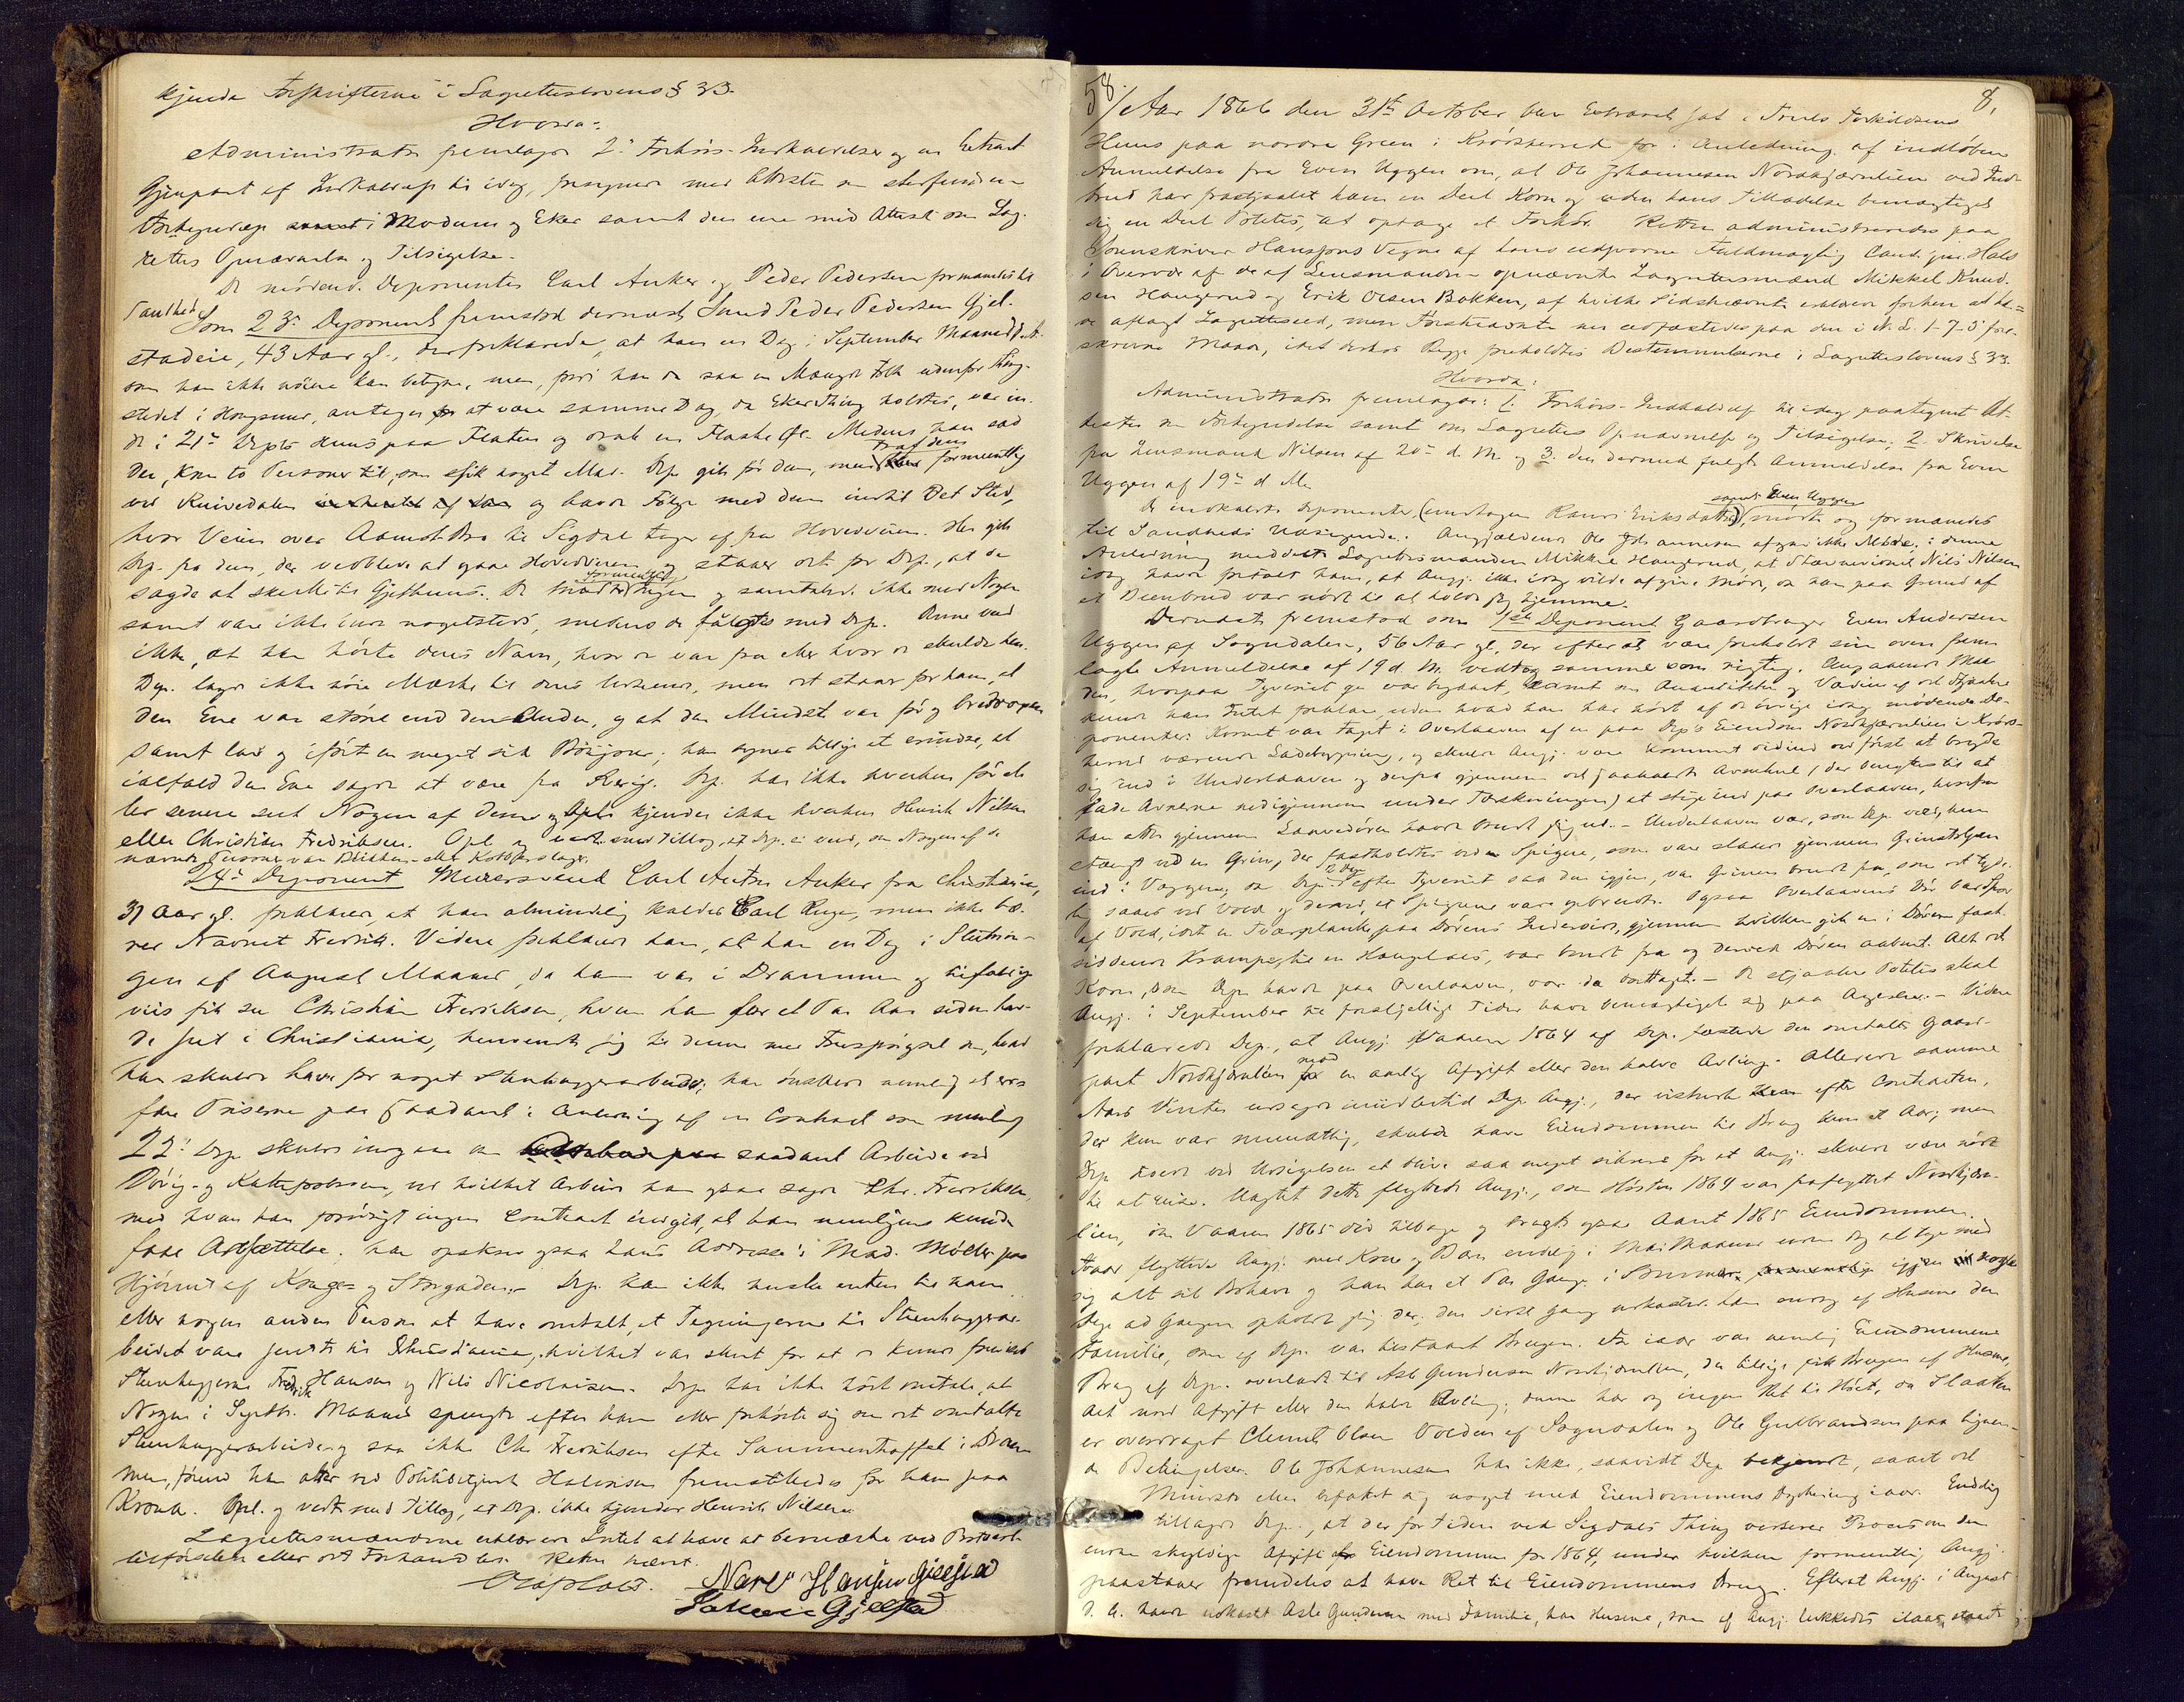 kjende Forskrifterne i Lagrettelovens § 33.
Hvorda:
Administrator fremlagde 2de Forhørs-Indkaldelser og en Extract
Gjenpart af Indkaldelse til idag, forsynede med Attester om stedfunden
Forkyndelse samt i Modum og Eker samt den ene med Attest om Lag-
rettets Opnævnelse og Tilsigelse.
De mødende Deponenter Carl Anker og Peder Pedersen formanedes til
Sandhed.
Som 23de Deponent fremstod dernæst Smed Peder Pedersen Gjel-
stadeie, 43 Aar gl., der forklarede, at han en Dag i September Maaned d. A.
som han ikke nøiere kan betegne, men, fordi han da saa en Mængde Folk udenfor Thing-
stedet i Hougsund, antager at være samme Dag, da Eker Thing holdtes, var in-
de i 21de Dep's Huus paa Flaten og drak en Flaske Øl. Medens han sad
der, kom to Personer til, som fik noget Mad. Dep. gik før dem, men traf dem formeentlig
ved Knivedalen og havde Følge med dem indtil Det Sted,
hvor Veien over Aamot Bro til Sigdal tager af fra Hovedveien. Her gik
Dep. fra dem, der vedbleve at gaae Hovedveien og staaer det for Dep., at de
sagde at skulle til Gjethuus. De mødte formentlig Ingen og samtalede ikke med Nogen
samt vare ikke inde nogetsteds, medens de fulgtes med Dep. Denne veed
ikke, at han hørte deres Navn, hvor de var fra eller hvor de skulde hen.
Dep. lagde ikke nøie Mærke til deres Udseende, men det staaer for ham, at
den Ene var større end den Anden, og at den Mindste var før og bredvoxen
samt lav og iført en meget slidt Bøxer; han synes tillige at erindre, at
ialfald den Ene sagde at være fra Sverig. Dep. har ikke hverken før el-
ler senere seet Nogen af Denne og kjender ikke hverken Henrik Nilsen
eller Christian Fredriksen. Opl. og vedt. med Tillæg, at Dep. ei veed, om Nogen af de
nævnte Personer var Blikken- eller Kobberslager.
24de Deponent Murersvend Carl Anton Anker fra Christiania,
31 Aar gl. forklarer, at han almindelig kaldes Carl Ruge, men ikke bæ-
rer Navnet Fredrik. Videre forklarede han, at han en Dag i Slutnin-
gen af August Maaned, da han var i Drammen og tilfældig-
viis fik see Christian Fredriksen, hvem han for et Par Aar siden hav-
de seet i Christiania, henvendte sig til denne med Forespørgsel om, hvad
han skulde have for noget Stenhuggerarbeide; han ønskede nemlig at er-
fare Priserne paa saadant i Anledning af en Contract som nemlig
22de Dep. skulde indgaae om saadant Arbeide ved
Døvig- og Kattefosbroen, ved hvilket Arbeide han ogsaa sagde Chr. Fredriksen,
med hvem han forøvrigt ingen Contract indgik, at han muligens kunde
faae Ansættelse; han opskrev ogsaa hans Addresse: Mad. Møller paa
Hjørnet af Kroges og Storgaden. Dep. kan ikke huske enten til ham
eller nogen anden Person at have omtalt, at Tegningerne til Steenhuggerar-
beidet vare sendte til Christiania, hvilket var skeet for at de kunde forevises
Stenhuggerne Fredrik Hansen og Nils Nicolaisen. Dep. har ikke hørt omtale, at
Nogen i Septbr. Maaned spurgte efter ham eller forhørte sig om det omtalte
Stenhuggerarbeide og saa ikke Chr. Fredriksen efter Sammentræffet i Dram-
men, førend han atter ved Politibetjent Halvorsen fremstilledes for ham paa
Krona. Opl. og vedt. med Tillæg, at Dep. ikke kjender Henrik Nilsen.
Lagrettesmændene erklærede Intet at have at bemærke ved Protocol-
tilførselen eller det Forhandlede. Retten hævet.
Olaf Hals. Narv Hansen Gjelstad
Gjelstad
58. 8.
Aar 1866 den 31te October blev Extraret sat i Truls Torkildsens
Huus paa nordre Green i Krødsherred for i Anledning af indløben
Anmeldelse fra Even Uggen om, at Ole Johannesen Nordkjærnlien ved Ind-
brud har frastjaalet ham en Deel Korn og uden hans Tilladelse bemægtiget
sig en Deel Potetes, at optage et Forhør. Retten administreredes paa
Sorenskriver Hansons Vegne af hans edsvorne Fuldmægtig Cand. jur. Hals
i Overvær af de af Lensmanden opnævnte Lagrettesmænd Mikkel Knud-
sen Haugerud og Erik Olsen Bakken, af hvilke Sidstnævnte erklærede forhen at ha-
ve aflagt Lagretteseed, mens Førstnævnte nu edfæstedes paa den i N. L. 1-7-3 fore-
skrevne Maade, idet derhos Begge foreholdtes Bestemmelserne i Lagrettelovens § 33.
Hvorda:
Administrator fremlagde: 1. Forhørs-Indkaldelse til idag paategnet At-
tester om Forkyndelse samt om Lagrettes Opnævnelse og Tilsigelse, 2. Skrivelse
fra Lensmand Nilsen af 20de d. M. og 3. den dermed fulgte Anmeldelse fra Even
Uggen af 19de d. M.
De indkaldte Deponenter, (undtagen Randi Eriksdatter) samt Even Uggen, mødte og formanedes
til Sandheds Udsigende. Angjældende Ole Johannesen afgav ikke Møde; i denne
Anledning meddelte Lagrettesmanden Mikkel Haugerud, at Stævnevidnet Nils Nilsen
idag havde fortalt ham, at Angj. ikke idag vilde afgive Møde, da han paa Grund af
et Beenbrud var nødt til at holde sig hjemme.
Dernæst fremstod som 1ste Deponent Gaardbruger Even Andersen
Uggen af Sognedalen, 56 Aar gl., der efterat være foreholdt sin oven frem-
lagte Anmeldelse af 19 d. M. vedtog samme som rigtig. Angaaende Maa-
den, hvorpaa Tyveriet var begaaet, samt om Qvantiteten og Værdien af det Stjaalne
kunde han Intet forklare, uden hvad han har hørt af de øvrige idag mødende De-
ponenter. Kornet var taget i Overlaaven af en paa Dep's Eiendom Nordkjærnlien i Krøds-
herred værende Ladebygning, og skulde Angj. være kommet derind ved først at bryde
sig ind i Underlaaven og derfra gjennem det saakaldte Avnehul (der benyttes til at
lade Avnerne nedigjennem under Tærskningen) at stige ind paa Overlaaven, hvorfra
han atter gjennem Laavedøren havde brudt sig ud. Underlaaven var, som Dep. veed, kun
stængt ved en Grind, der fastholdtes ved en Spiger, som vare slaaet gjennem Grindstolpen
ind i Væggen; da Dep. efter Tyveriet saa den igjen, var Grinden brudt fra, som det tyde-
lig saaes ved Vold og derved, at Spigerne vare udbrudte. Ogsaa Overlaavens Dør bar Spor
af Vold, idet en Tværplanke paa Dørens Inderside, gjennem hvilken gik en i Døren fast-
siddende Krampe til en Hængelaas, var brudt fra og derved Døren aabnet. Alt det
Korn, som Dep. havde paa Overlaaven, var da borttaget. De stjaalne Potetes skal
Angj. i September til forskjellige Tider have bemægtiget sig paa Ageren. Videre
forklarede Dep., at Angj. Vaaren 1864 af Dep. fæstede den omtalte Gaard-
part Nordkjærnlien mod en aarlig Afgift eller den halve Avling. Allerede samme
Aars Vinter udsagde imidlertid Dep. Angj., der vistnok efter Contracten,
der kun var mundtlig, skulde have Eiendommen til Brug kun et Aar; men
Dep. troede ved Udsigelsen at blive saa meget sikrere for at Angj. skulde være nødt
til at vige. Uagtet dette flyttede Angj., som Høsten 1864 var fraflyttet Nordkjærn-
lien, om Vaaren 1865 did tilbage og brugte ogsaa Aaret 1865 Eiendommen.
Iaar flyttede Angj. med Kone og Børn endelig i Mai Maaned uden dog at tage med
sig alt sit Bohave og han har et Par Gange i Sommer igjen nogle
Dage ad Gangen opholdt sig der; den sidste Gang udkastede han endog af Husene den
Familie, som af Dep. var tilstaaet Brugen. For iaar var nemlig Eiendommens
Brug af Dep. overladt til Asle Gundersen Nordkjærnlien, der tillige fik Brugen af Husene,
Alt mod Afgift eller den halve Avling; denne har og ingen Ret til Høet, da Slaatten
er overdraget Clemet Olsen Volden af Sognedalen og Ole Gulbrandsen paa lignen-
de Betingelser. Ole Johannesen har ikke, saavidt Dep. bekjendt, saaet det
Mindste eller befattet sig noget med Eiendommens Dyrkning iaar. Endelig
tillagde Dep., at der for Tiden ved Sigdals Thing verserer Proces om den
endnu skyldige Afgift af Eiendommen for 1864, under hvilken formeentlig Angj.
paastaaer fremdeles at have Ret til Eiendommens Brug. Efterat Angj. i August
d. A. havde udkastet Asle Gundersen med Familie, har Husene, som af Angj. lukkedes ilaas, staaet